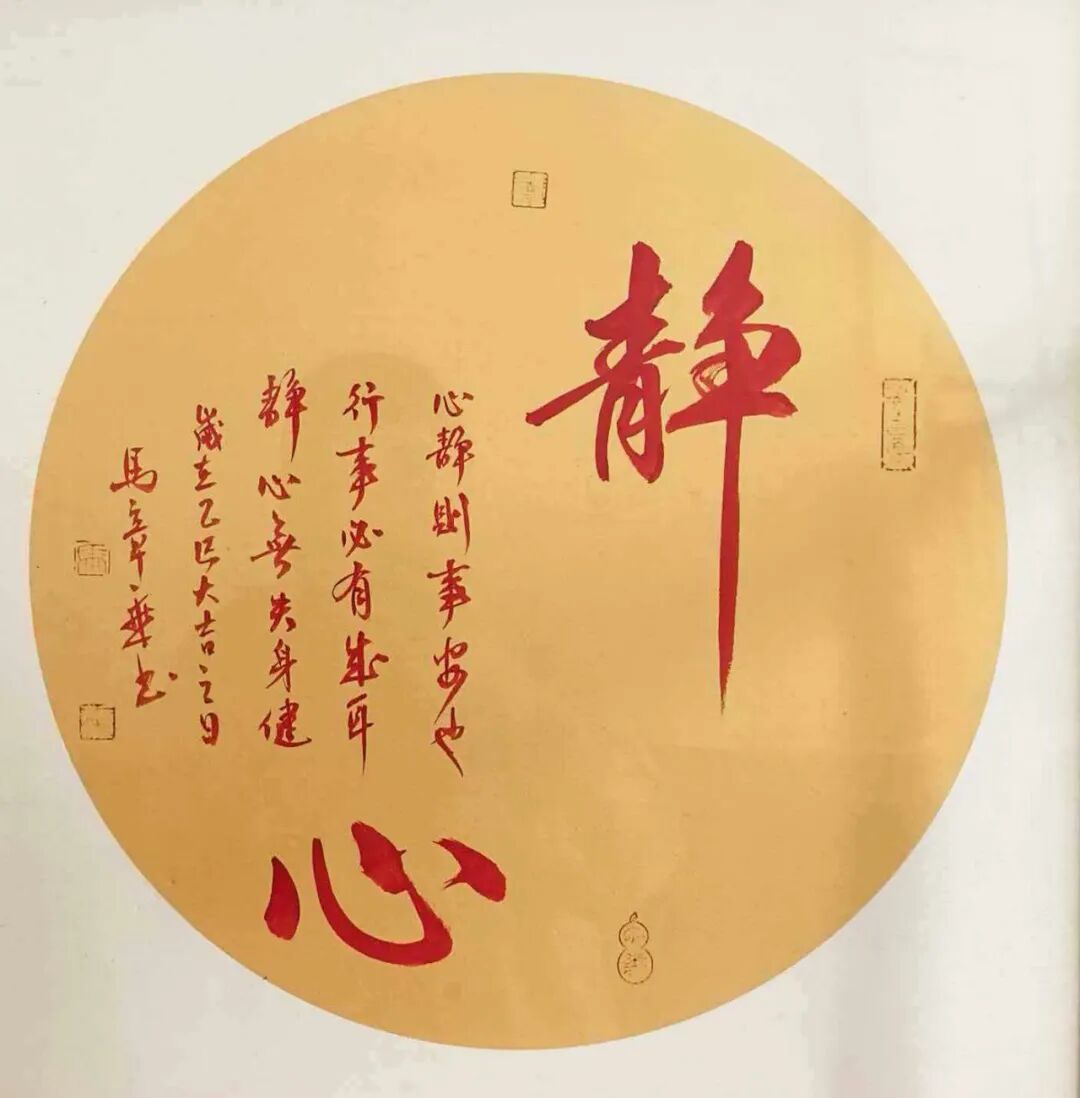 静
心
心静則事安也
行事必有成耳
静心無失身健
歲在乙巳大吉之日
馬章華书